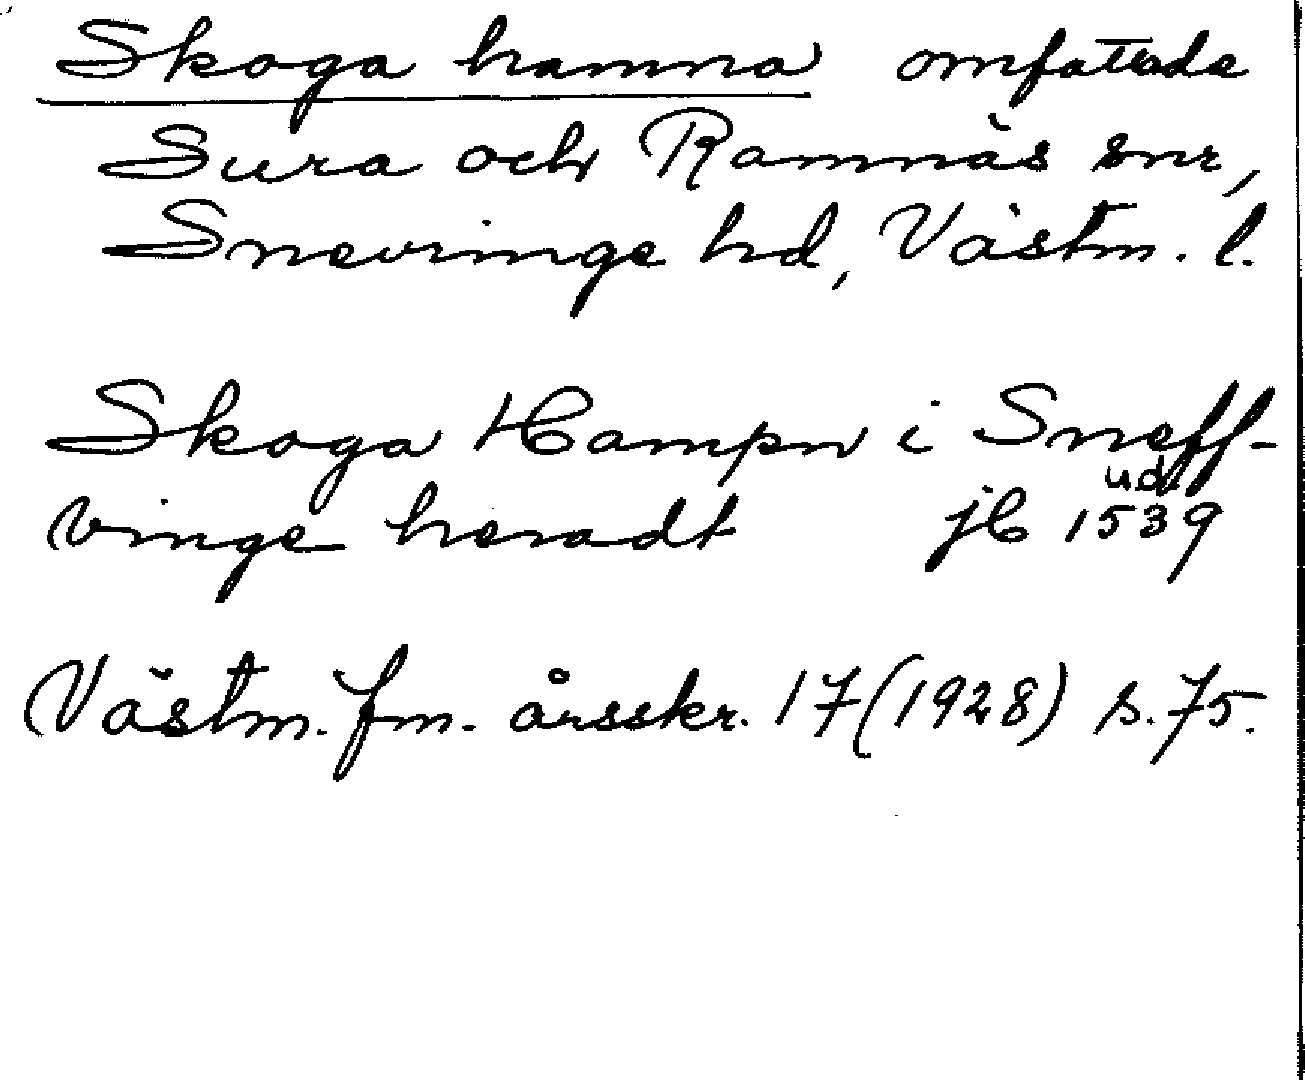 Skoga hamna omfattade
Sura och Ramnäs snr,
Snevringe hd, Västm. l.
Skoga Hampn i Sneff-
vinge heradt jb 1539
ud.
Västm. fm. årsskr. 17 (1928) s. 75.